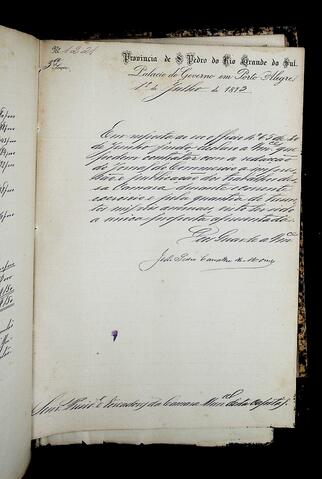 N. 1221
3ª Secção
Provincia de S. Pedro do Rio Grande do Sul.
Palacio do Governo em Porto Alegre
1º de Julho de 1872
Em resposta ao officio nº 65 de
de Junho findo, declaro a Vmces que
podem contratar com a redacção
do Jornal do Commercio a
publicação dos trabalhos
dessa Camara durante o corrente
exercicio e pela quantia de
mil reis mensaes, visto ter sido
a unica proposta apresentada.
Deos Guarde a Vmces
José Pedro Carvalho de Moraes
Snrs. Presidente e Vereadores da Camara Municipal desta Capital.